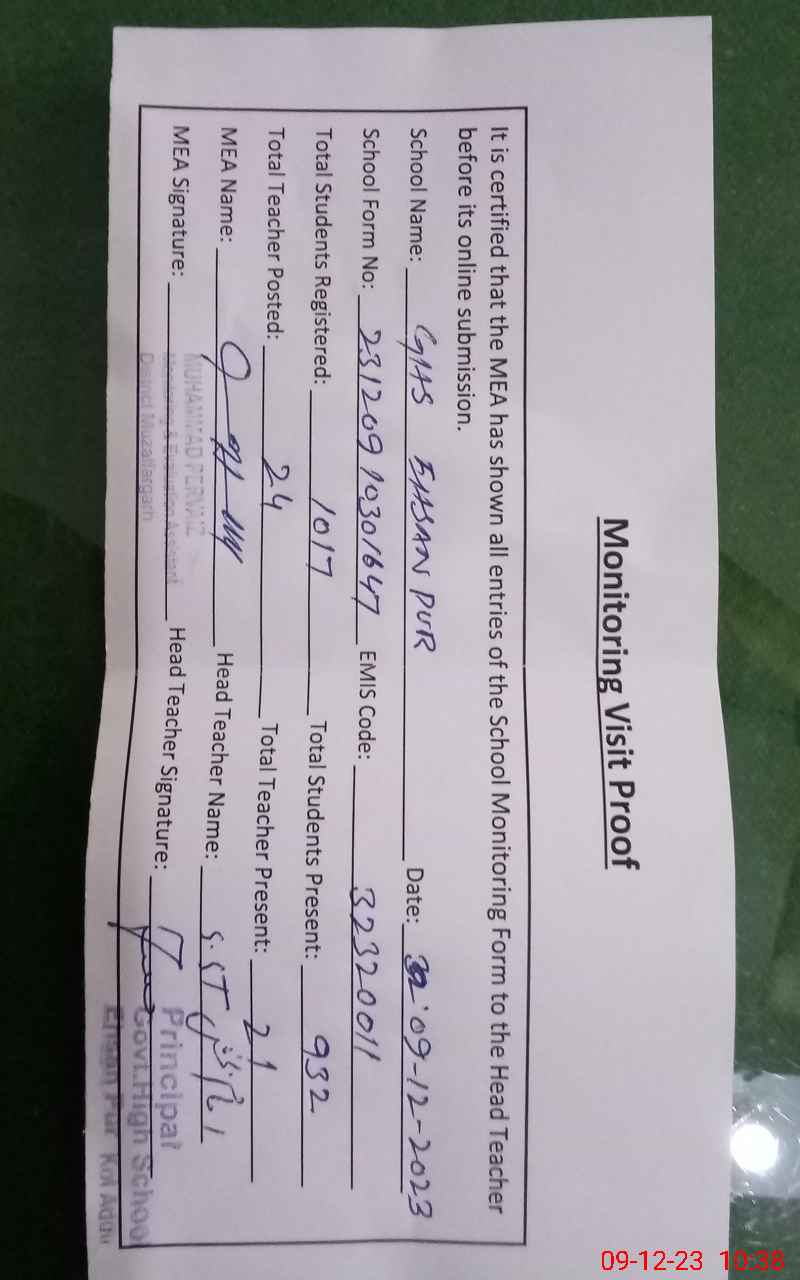 Monitoring Visit Proof
It is certified that the MEA has shown all entries of the School Monitoring Form to the Head Teacher
before its online submission.
School Name: GHS EHSAN PUR Date: 09-12-2023
School Form No: 23120910301647 EMIS Code: 32320011
Total Students Registered: 1017 Total Students Present: 932
Total Teacher Posted: 24 Total Teacher Present: 21
MEA Name: Head Teacher Name:
MEA Signature: Head Teacher Signature:
MUHAMMAD PERVAIZ
Monitoring & Evaluation Assistant
District Muzaffargarh
Principal
Govt. High School
Ehsan Pur Kot Addu
09-12-23 10:38